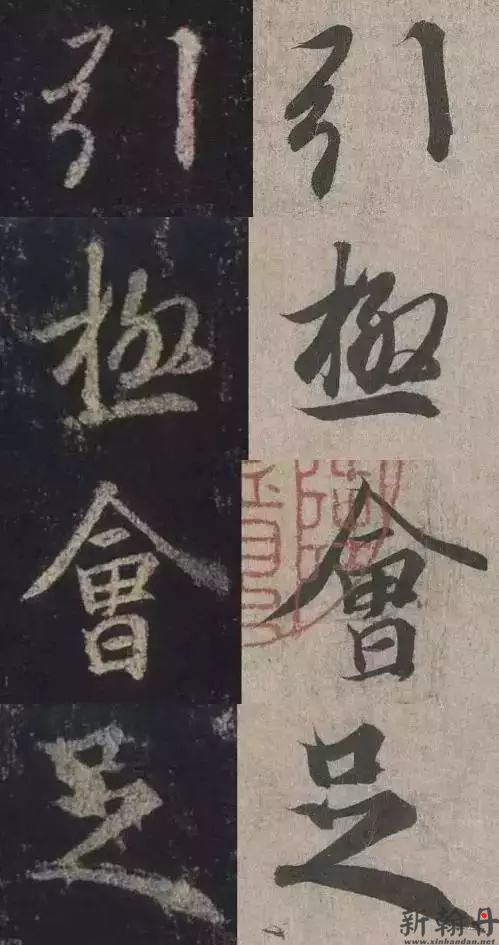 引 引
極 極
會 會
足 足
新翰丹
www.xinhandan.net